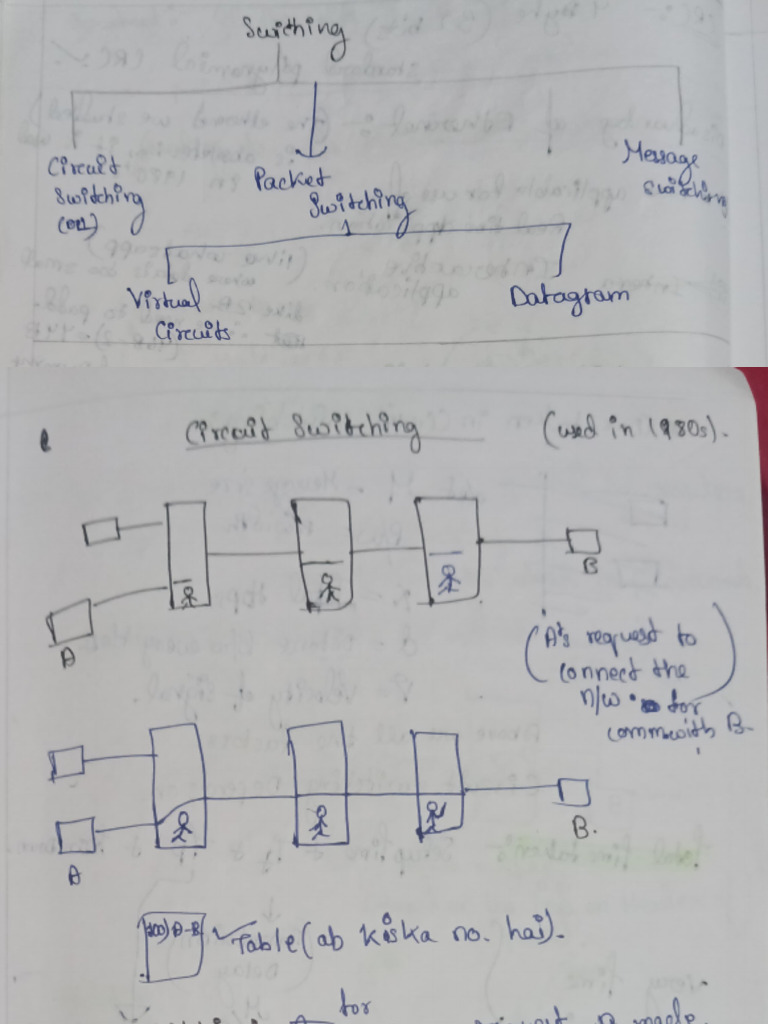 Switching
Circuit
Switching
Packet
Switching
Message
Switching
Virtual
Circuits
Datagram
Circuit Switching (used in 1980s).
A
B
(A's request to
connect the
n/w for
comm with B.
A
B.
A-B
Table (ab kiska no. hai).
for
made.